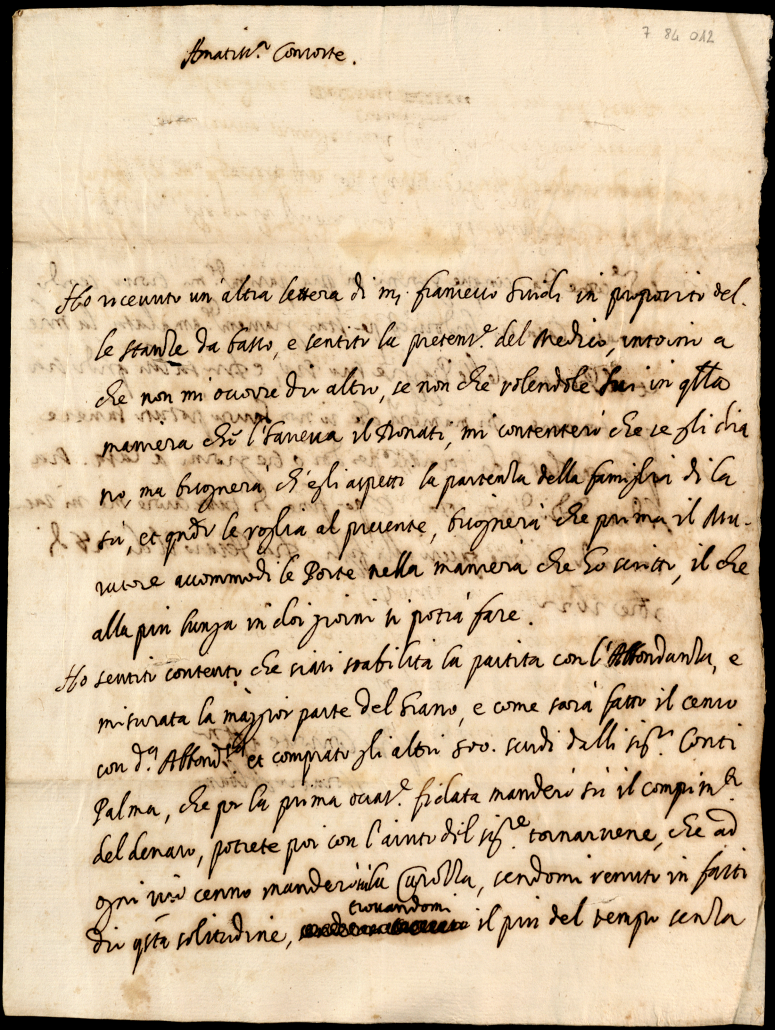 7 84 012
Amatiss.ª Consorte.
Ho ricevuto un'altra lettera di m.r Francesco Guidi in proposito del-
le stanze da basso, e sentito la pretens.e del Medico, intorno a
che non mi occorre dir altro, se non che volendole lui in q.lla
maniera che l'haveva il Donati, mi contenterò che se gli dia
no, ma bisognerà, ch'egli aspetti la partenza della famiglia di la
sù, et q.ndo le voglia al presente, bisognerà che prima il Mu-
ratore accommodi le Porte nella maniera che ho scritto, il che
alla più lunga in doi giorni si potrà fare.
Ho sentito contento che siasi stabilita la partita con l'Abbondanza, e
misurata la maggior parte del Grano, e come sarà fatto il censo
con d.ª Abbond.za et comprato gli altri 500. scudi dalli sig.ri Conti
Palma, che per la prima occas.e fidata manderò sù il compim.to
del denaro, potrete poi con l'aiuto del sig.re tornarvene, che ad
ogni vño cenno manderò sù la Carozza, sendomi venuto in fasti
dio q.sta solitudine, trovandomi il più del tempo senza